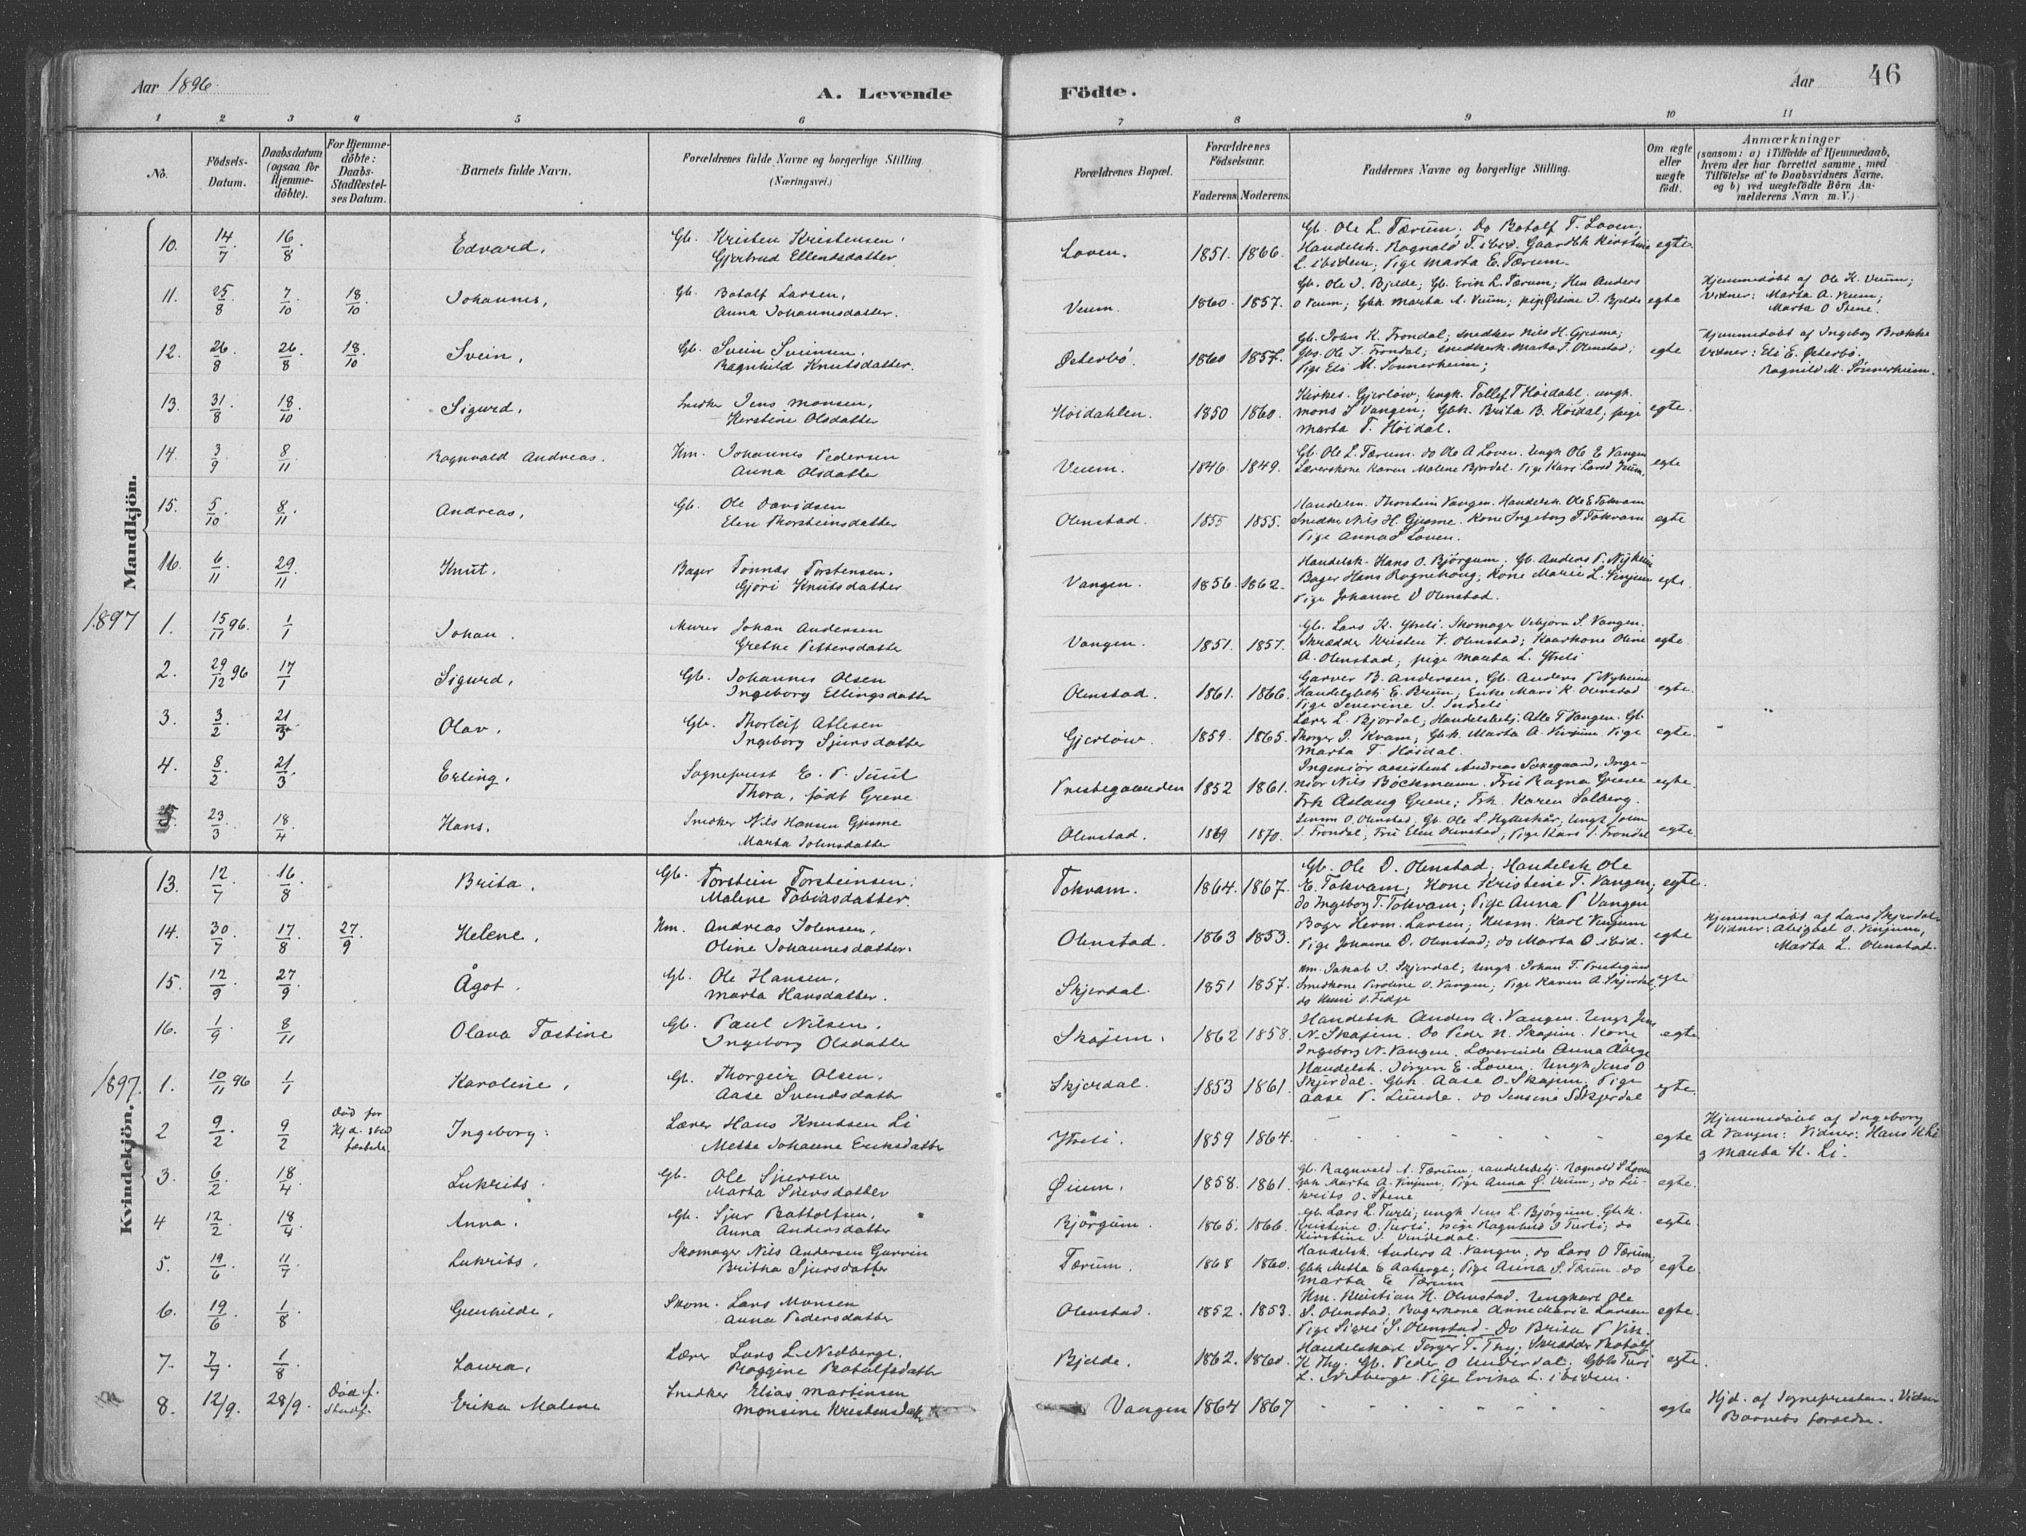 Aar 1896.
A. Levende Födte.
Aar 46
1 2 3 4 5 6 7 8 9 10 11
No.
Födsels-Datum.
Daabsdatum (ogsaa for Hjemme-döbte).
For Hjemme-döbte: Daabs-Stadfæstel-ses Datum.
Barnets fulde Navn.
Forældrenes fulde Navne og borgerlige Stilling.
(Næringsvei.)
Forældrenes Bopæl.
Forældrenes Födselsaar.
Faderens. Moderens.
Faddernes Navne og borgerlige Stilling.
Om ægte eller uægte født.
Anmærkninger
(saasom: a) i Tilfælde af Hjemmedaab,
hvem der har forrettet samme, med
Tilföielse af to Daabsvidners Navne,
og b) ved uægtefödte Börn An-
melderens Navn m. V.)
Mandkjön.
10. 14/7 16/8 Edvard. Gb. Kristen Kristensen, Gjertrud Ellendsdatter Loven. 1851. 1866. Gb. Ole L. Tærum, do Botolf T. Loven, Handelsk. Ragnald T. ibid. Gaardbk Kirstine L. ibidem, Pige Marta E. Tærum. egte
11. 25/8 7/10 18/10 Johannes, Gb. Botolf Larsen, Anna Johannesdatter. Veum. 1860. 1857. Gb. Ole J. Bjelde; Gb. Erik L. Tærum; Hm Anders O Veum; Gbk Marta A. Veum; pige Østine J. Bjelde egte Hjemmedøbt af Ole K. Veum; Vidner: Marta A. Veum; Marta O Stene.
12. 26/8 26/8 18/10 Svein, Gb. Svein Sveinsen, Ragnhild Knutsdatter. Østerbø. 1860 1857. Gb. Johan K. Frondal; snedker Nils H. Gjesme; Gbs. Ole J. Frondal; snedkerk. Marta J. Olnstad; Pige Eli M. Sønnerheim; egte Hjemmedøbt af Ingeborg Brække Vidner: Eli E. Østerbø. Ragnild M. Sønnerheim.
13. 31/8 18/10 Sigurd, Snedker Jens Monsen, Kerstine Olsdatter Høidahlen. 1850 1860. Kirkes. Gjerløw; Ungk. Tollef T Høidahl, ungk. Mons S Vangen; Gbk. Brita B. Høidal, pige Marta T. Høidal. egte.
14. 3/9 8/11 Ragnvald Andreas. Hm. Johannes Pedersen Anna Olsdatter Veum. 1846. 1849. Gb. Ole L. Tærum. do Ole A Loven. Ungk Ole E Vangen Lærerskone Karen Malene Bjørdal. Pige Kari Larsd Veum. egte
15. 5/10 8/11 Andreas, Gb. Ole Davidsen Elen Thorsteinsdatter Olnstad. 1855 1855. Handelsm. Thorstein Vangen. Handelsk Ole E Tokvam Snedker Nils H. Gjesme. Kone Ingeborg T. Tokvam Pige Anna S Loven. egte
16. 6/11 29/11 Knut. Bager Tomas Torstensen. Gjøri Knutsdatter Vangen. 1856. 1862. Handelsk. Hans O. Bjørgum. Gb. Anders P. Nyheim Bager Hans Rognehøug; Kone Marie L. Vinjum Pige Johanne D Olnstad. egte.
1897 1. 15/11 96. 1/1 Johan. Murer Johan Andersen Grethe Pettersdatter Vangen. 1851. 1857. Gb. Lars K. Ytreli. Skomager Vebjørn S. Vangen. Skrædder Kristen V. Olnstad; Kaarkone Oline A. Olnstad; pige Marta L. Ytreli egte
2. 29/12 96 17/1 Sigurd. Gb. Johannes Olsen Ingeborg Ellingsdatter Olnstad. 1861. 1866. Garver B. Andersen, Gb. Anders P Nyheim Handelsbetj E. Brun; Enke Mari K Olnstad Pige Severine J. Indreli egte.
3. 3/2 21/3 Olav. Gb. Thorleif Atlesen Ingeborg Sjursdatter Gjerløw. 1859. 1865. Lærer L. Bjørdal; Handelsbetj. Atle T Vangen. Gb. Thorger J. Kvam; Gbk. Marta A. Vinjum Pige Marta T. Høidal. egte.
4. 8/2 21/3 Erling. Sogneprest E. P. Juul Thora, født Greve. Prestegaarden 1852 1861. Ingeniør assistent Andreas Saxegaard, Inge-niør Nils Böckmann. Fru Ragna Greve Frk Aslaug Greve; Frk. Karen Solberg. egte.
5. 23/3 18/4 Hans. Snedker Nils Hansen Gjesme Marta Johnsdatter Olnstad. 1869 1870. O. Olnstad, Gb. Ole L Hylleskår; Ungk John J. Frondal, Fru Elen Olnstad, Pige Kari J. Frondal egte.
Kvindekjön.
13. 12/7 16/8 Brita. Gb. Torstein Torsteinsen. Malene Tobiasdatter. Tokvam. 1864. 1867. Gb. Ole D. Olnstad; Handelsk Ole E. Tokvam; Kone Kristine T. Vangen; do Ingeborg T. Tokvam; Pige Anna P Vangen egte.
14. 30/7 17/8 27/9 Helene. Hm. Andreas Jolensen, Oline Johannesdatter. Olnstad. 1863 1853. Bager Herm. Larsen; Husm. Karl Vinjum Pige Johanne O. Olnstad; do Marta O. ibid. egte Hjemmedøbt af Lars Skjerdal Vidner: Abigael O. Vinjum, Marta L. Olnstad.
15. 12/9 27/9 Ågot. Gb. Ole Hansen, Marta Hansdatter. Skjerdal. 1851 1857. Hm. Jakob J. Skjerdal; Ungk. Johan T. Prestegaar Smedkone Proline O. Vangen; Pige Karen A. Skjerdal do Kari O. Fedje egte
16. 1/9 8/11 Olava Tostine Gb. Paul Nilsen. Ingeborg Olsdatter Skajem. 1862 1858. Handelsk Anders A. Vangen. Ungk Jens N. Skajem. do Peder N. Skajem. Kone Ingeborg N. Vangen. Lærerinde Anna Aberge egte
1897. 1. 10/11 96 1/1 Karoline. Gb. Thorgeir Olsen. Aase Svendsdatter Skjerdal. 1853 1861. Handelsk. Jörgen E. Loven. Ungk Jens O Skjerdal. Gbk Aase O. Skajem, Pige Aase P. Lunde. do Jensine S Skjerdal egte
2 9/2 9/2 Død før Hjd. stad fæstede Ingeborg. Lærer Hans Knutsen Li Mette Johanne Eriksdatter Ytreli. 1859 1864. egte Hjemmedøbt af Ingeborg A Vangen: Vidner: Hans K Li og Marta H. Li.
3. 6/2 18/4 Lukrits. Gb. Ole Sjursen Marta Sjursdatter Øium. 1858. 1861. Gb. Ragnvald A. Tærum; Handelsbetj. Ragnald S Loven Gbk Marta A. Vinjum; Pige Anna Ø. Veum; do Lu-krits O. Stene egte.
4 12/2 18/4 Anna. Gb. Sjur Botolfsen. Anna Andersdatter Bjørgum. 1865. 1866. Gb. Lars L. Turli; ungk Jens L. Bjørgum, Gbk. Kristine O. Turli, pige Ragnhild J Turli; do Kirstine J. Underdal. egte.
5. 19/6 11/7 Lukrits. Skomager Nils Andersen Gurvin Britha Sjursdatter Tærum. 1868 1860. Handelsk. Anders A. Vangen; do Lars O Tærum, Gbk Metta E Aaberge; Pige Anna S. Tærum do Marta E Tærum egte.
6. 19/6 1/8 Gunhilde. Skom. Lars Monsen Anna Pedersdatter Olnstad. 1852. 1853. Hm. Kristian H. Olnstad. Ungkarl Ole S. Olnstad, Bagerkone Annemarie Larsen Pige Sigri S. Olnstad. Do Brita P Vik. egte.
7. 7/7 1/8 Laura. Lærer Lars L. Nedberge. Raggine Botolfsdatter Bjelde. 1862. 1860. Handelskarl Torger T. Thy; Skrædder Botolf K Thy. Gb. Peder O Underdal; Gbk Turi L. Nedberge. Pige Erika L. ibidem. egte.
8. 12/9. 28/9. Død f. Stadf. Erika Malene Snedker Elias Martinsen Monsine Kristensdatt Vangen 1864 1867 egte Hjd. af Sognepresten. Vidner Barnets forældre.